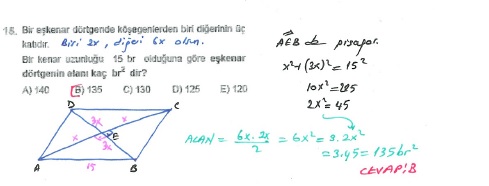 15. Bir eşkenar dörtgende köşegenlerden biri diğerinin üç
katıdır. Biri 2x, diğeri 6x olsun.
Bir kenar uzunluğu 15 br olduğuna göre eşkenar
dörtgenin alanı kaç br² dir?
A) 140 B) 135 C) 130 D) 125 E) 120
D C
3x x
x E 3x
A 15 B
AEB de pisagor.
x²+(3x)²=15²
10x²=225
2x²=45
ALAN = 6x.2x / 2 = 6x² = 3.2x²
= 3.45 = 135 br²
CEVAP: B